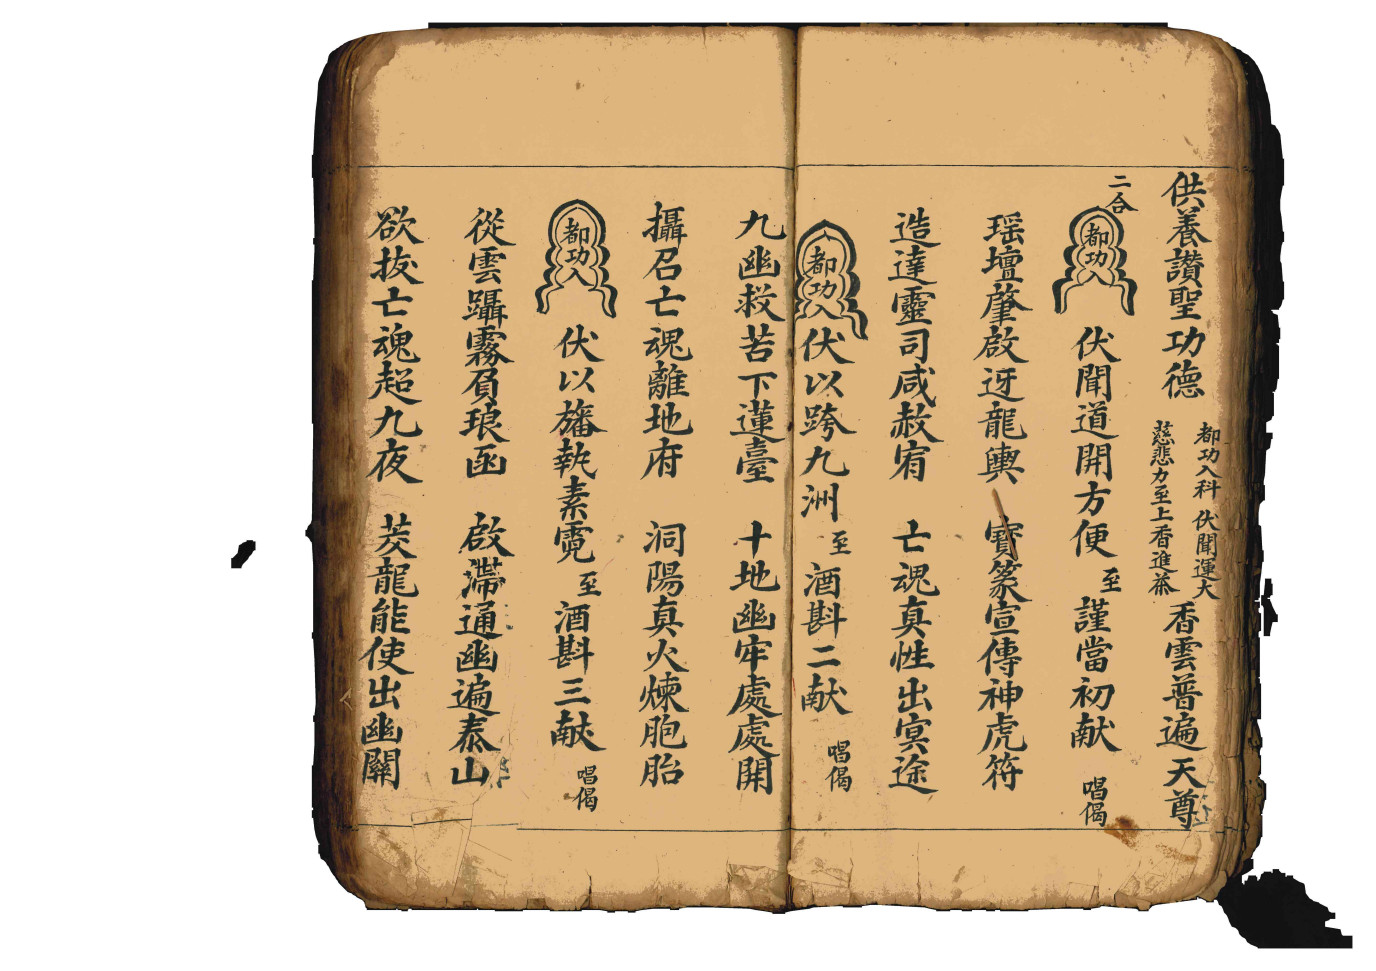 供養讃聖功德 都功入科 伏聞運大慈悲力至上香進茶 香雲普遍天尊
二合 都功 伏聞道開方便 至 謹當初献 唱偈
瑶壇肇啟迓龍輿 寶篆宣傳神虎符
造達靈司咸赦宥 亡魂真性出冥途
都功入 伏以跨九洲 至 酒斟二献 唱偈
九幽救苦下蓮臺 十地幽牢處處開
攝召亡魂離地府 洞陽真火煉胞胎
都功入 伏以旛執素霓 至 酒斟三献 唱偈
從雲躡霧負琅函 啟滯通幽遍泰山
欲拔亡魂超九夜 茭龍能使出幽關